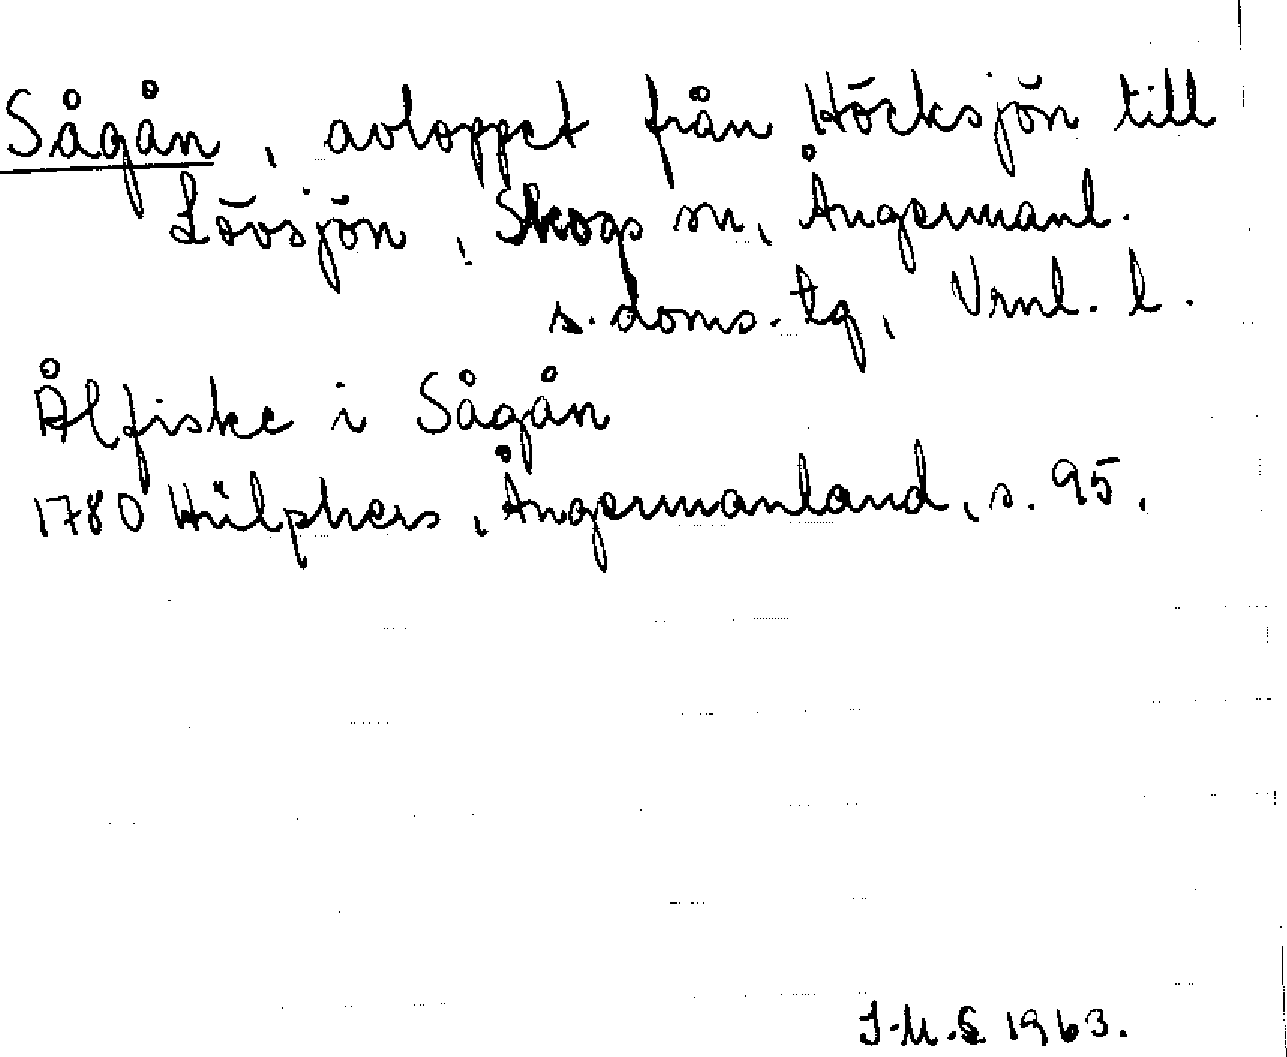 Sågån, avloppet från Höcksjön till
Lövsjön, Skogs sn, Ångermanl.
s. doms. tg, Vrnl. l.
Ålfiske i Sågån
1780 Hülphers, Ångermanland, s. 95.
J.M.S 1963.